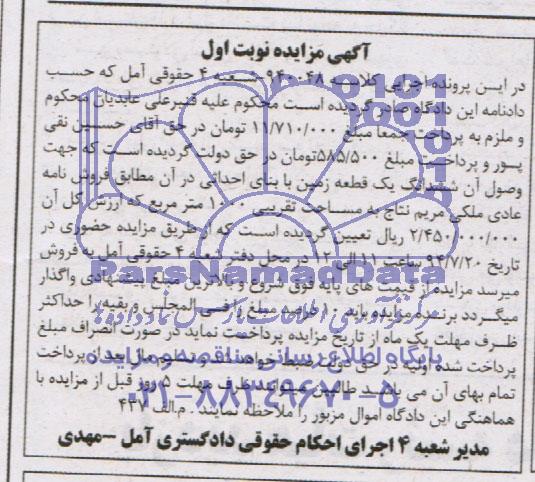 آگهی مزایده نوبت اول
در ایـن پرونده اجرایی کلاسه ۹۴۰۰۴۸ شعبه ۴ حقوقی آمل که حسب
دادنامه این دادگاه صادر گردیده اسـت محکوم علیه قنبرعلی عابدیان محکوم
و ملزم به پرداخت جمعا مبلغ ۱۱/۷۱۰/۰۰۰ تومان در حق آقای حسـین نقی
پور و پرداخـت مبلغ ۵۸۵/۵۰۰تومان در حق دولت گردیده اسـت که جهت
وصول آن ششدانگ یک قطعه زمین با بنای احداثی در آن مطابق فروش نامه
عادی ملکی مریم نتاج به مسـاحت تقریبی متر مربع که ارزش کل آن
۲/۴۵۰/۰۰۰/۰۰۰ ریال تعیین گردیده اسـت که از طریق مزایده حضوری در
تاریخ ۹۴/۷/۲۰ ساعت ۱۱ الی ۱۲ در محل دفتر شعبه ۴ حقوقی آمل به فروش
میرسد مزایده از قیمت های پایه فوق شروع و بالاترین مبلغ پیشنهادی واگذار
میگـردد برنـده مزایده باید ۱۰ درصد مبلغ را فـی المجلس و بقیه را حداکثر
ظـرف مهلت یک ماه از تاریخ مزایده پرداخـت نماید در صورت انصراف مبلغ
پرداخت شده اولیه در حق دولت ضبط خواهد شد و بعد از پرداخت
تمام بهای آن می باشـد طالبین میتوانند ظرف مهلت ۵ روز قبل از مزایده با
هماهنگی این دادگاه اموال مزبور را ملاحظه نمایند . م.الف ۴۳۷
مدیر شعبه ۴ اجرای احکام حقوقی دادگستری آمل –مهدی
ParsNamadData
پایگاه اطلاع رسانی مناقصه و مزایده
۰۲۱-۸۸۳۴۹۶۷۰-۵